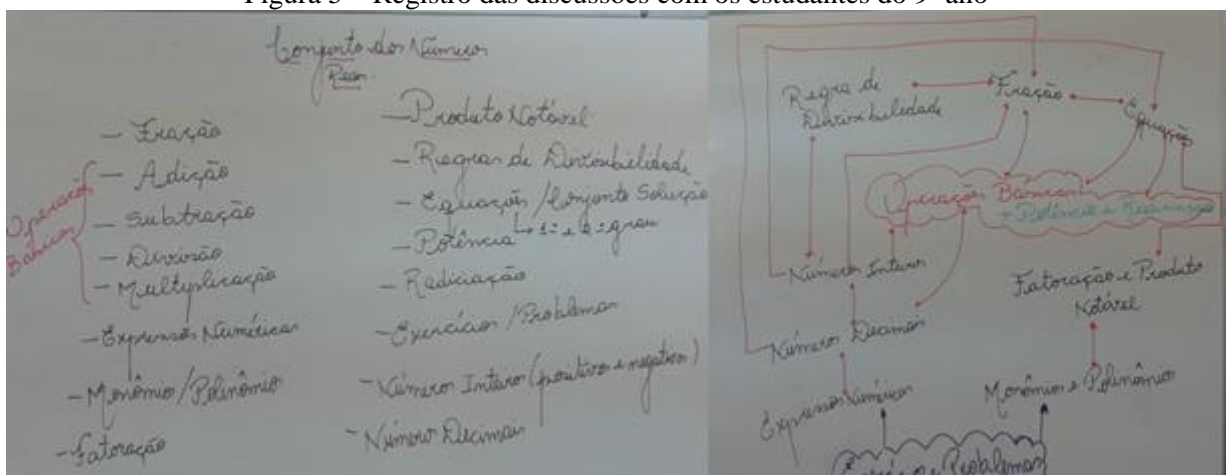 Figura 3 – Registro das discussões com os estudantes do 9º ano
Conjunto dos Números
Reais
Operações
Básicas
- Fração
- Adição
- Subtração
- Divisão
- Multiplicação
- Expressões Numéricas
- Monômio/Polinômio
- Fatoração
- Produto Notável
- Regras de Divisibilidade
- Equações/Conjunto Solução
1º e 2º grau
- Potência
- Radiciação
- Exercícios/Problemas
- Números Inteiros (positivos e negativos)
- Números Decimais
Regra de
Divisibilidade
Fração
Equação
Operações Básicas
+ Potência e Radiciação
Números Inteiros
Fatoração e Produto
Notável
Números Decimais
Expressões Numéricas
Monômio e Polinômio
Exercícios e Problemas